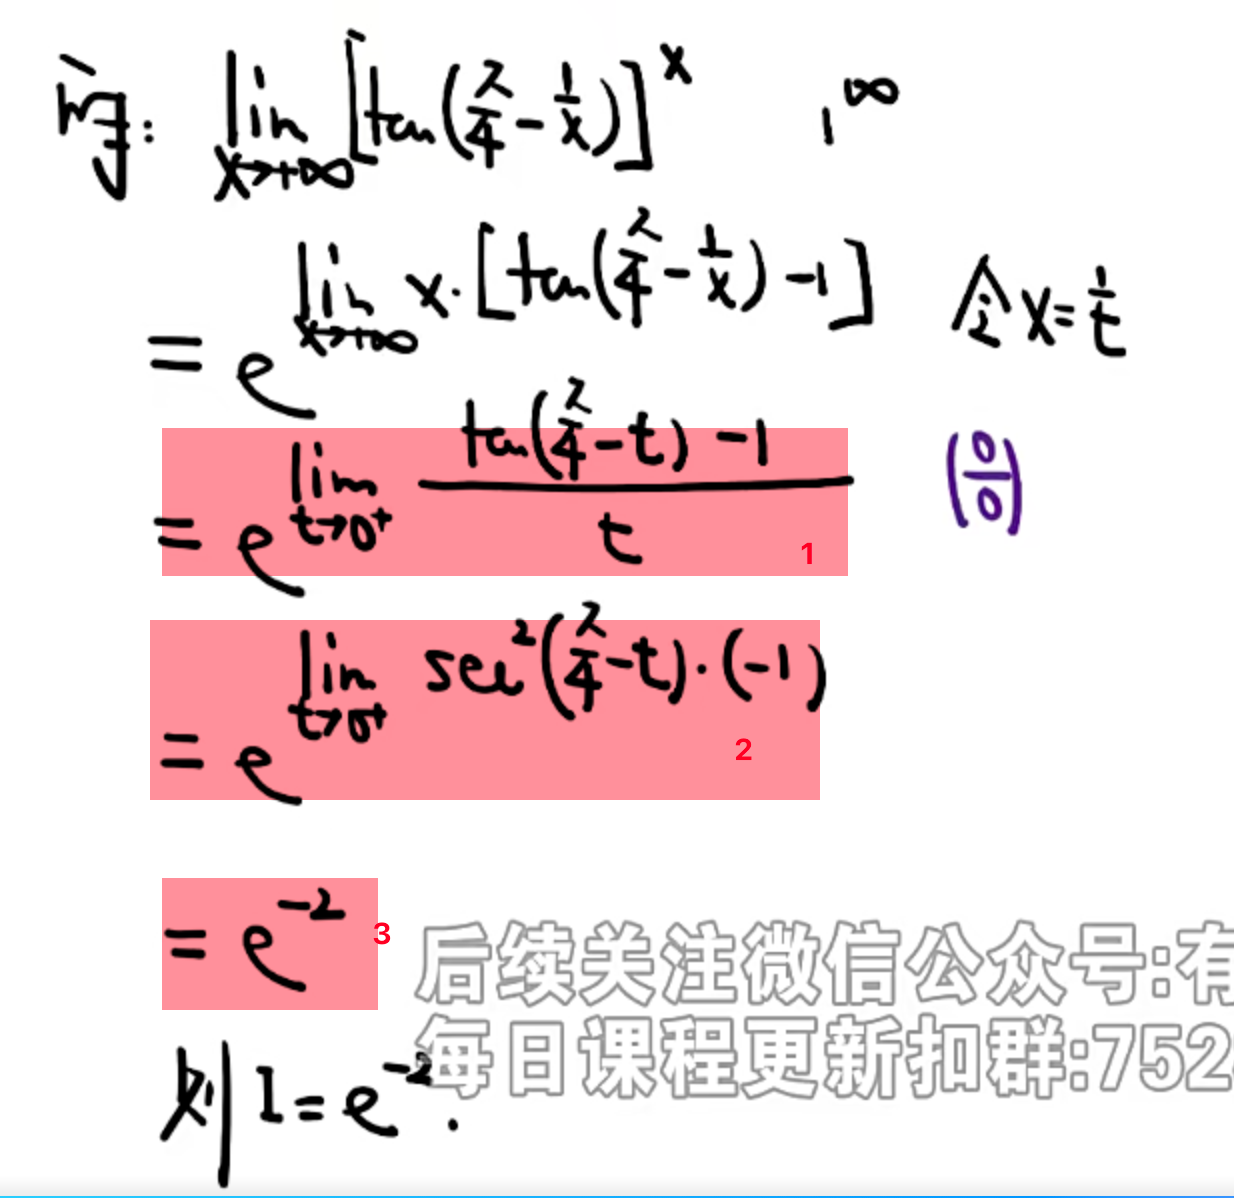 可: lim x→+∞ [tan(π/4 - 1/x)]^x 1^∞
= e^{lim x→+∞ x·[tan(π/4 - 1/x) - 1]} 令 x = 1/t
= e^{lim t→0⁺ (tan(π/4 - t) - 1)/t} (0/0)
1
= e^{lim t→0⁺ sec²(π/4 - t)·(-1)}
2
= e^{-2} 3
后续关注微信公众号:有
每日课程更新扣群:752
则 I = e^{-2}.